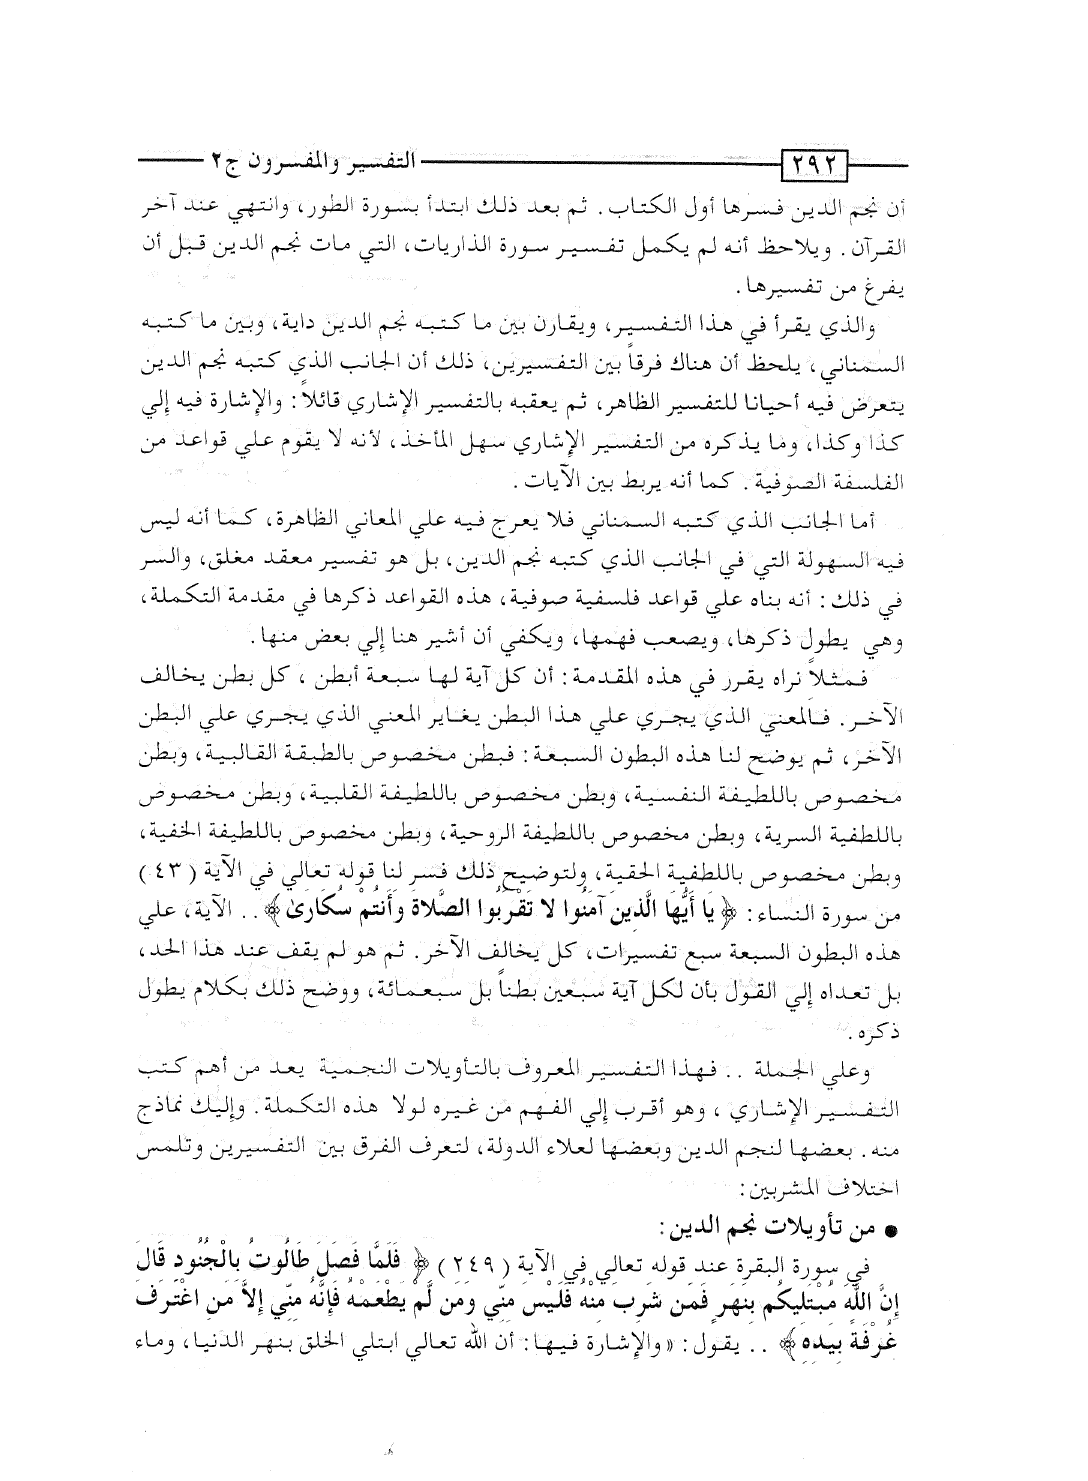 ٢٩٢ التفسير والمفسرون ج٢
أن نجم الدين فسرها أول الكتاب. ثم بعد ذلك ابتدأ بسورة الطور، وانتهي عند آخر
القرآن. ويلاحظ أنه لم يكمل تفسير سورة الذاريات، التي مات نجم الدين قبل أن
يفرغ من تفسيرها.
والذي يقرأ في هذا التفسير، ويقارن بين ما كتبه نجم الدين داية، وبين ما كتبه
السمناني، يلحظ أن هناك فرقاً بين التفسيرين، ذلك أن الجانب الذي كتبه نجم الدين
يتعرض فيه أحيانا للتفسير الظاهر، ثم يعقبه بالتفسير الإشاري قائلاً: والإشارة فيه إلي
كذا وكذا، وما يذكره من التفسير الإشاري سهل المأخذ، لأنه لا يقوم علي قواعد من
الفلسفة الصوفية. كما أنه يربط بين الآيات.
أما الجانب الذي كتبه السمناني فلا يعرج فيه علي المعاني الظاهرة، كما أنه ليس
فيه السهولة التي في الجانب الذي كتبه نجم الدين، بل هو تفسير معقد مغلق، والسر
في ذلك: أنه بناه علي قواعد فلسفية صوفية، هذه القواعد ذكرها في مقدمة التكملة،
وهي يطول ذكرها، ويصعب فهمها، ويكفي أن أشير هنا إلي بعض منها.
فمثلاً نراه يقرر في هذه المقدمة: أن كل آية لها سبعة أبطن، كل بطن يخالف
الآخر. فالمعني الذي يجري علي هذا البطن يغاير المعني الذي يجري علي البطن
الآخر، ثم يوضح لنا هذه البطون السبعة: فبطن مخصوص بالطبقة القالبية، وبطن
مخصوص باللطيفة النفسية، وبطن مخصوص باللطيفة القلبية، وبطن مخصوص
باللطفية السرية، وبطن مخصوص باللطيفة الروحية، وبطن مخصوص باللطيفة الخفية،
وبطن مخصوص باللطفية الحقية، ولتوضيح ذلك فسر لنا قوله تعالي في الآية (٤٣)
من سورة النساء: ﴿يَا أَيُّهَا الَّذِينَ آمَنُوا لا تَقْرَبُوا الصَّلاةَ وَأَنتُمْ سُكَارَىٰ﴾.. الآية، علي
هذه البطون السبعة سبع تفسيرات، كل يخالف الآخر. ثم هو لم يقف عند هذا الحد،
بل تعداه إلي القول بأن لكل آية سبعين بطناً بل سبعمائة، ووضح ذلك بكلام يطول
ذكره.
وعلي الجملة .. فهذا التفسير المعروف بالتأويلات النجمية يعد من أهم كتب
التفسير الإشاري، وهو أقرب إلي الفهم من غيره لولا هذه التكملة. وإليك نماذج
منه. بعضها لنجم الدين وبعضها لعلاء الدولة، لتعرف الفرق بين التفسيرين وتلمس
اختلاف المشربين:
● من تأويلات نجم الدين:
في سورة البقرة عند قوله تعالي في الآية (٢٤٩) ﴿فَلَمَّا فَصَلَ طَالُوتُ بِالْجُنُودِ قَالَ
إِنَّ اللَّهَ مُبْتَلِيكُم بِنَهَرٍ فَمَن شَرِبَ مِنْهُ فَلَيْسَ مِنِّي وَمَن لَّمْ يَطْعَمْهُ فَإِنَّهُ مِنِّي إِلاَّ مَنِ اغْتَرَفَ
غُرْفَةً بِيَدِهِ﴾ .. يقول: «والإشارة فيها: أن الله تعالي ابتلي الخلق بنهر الدنيا، وماء